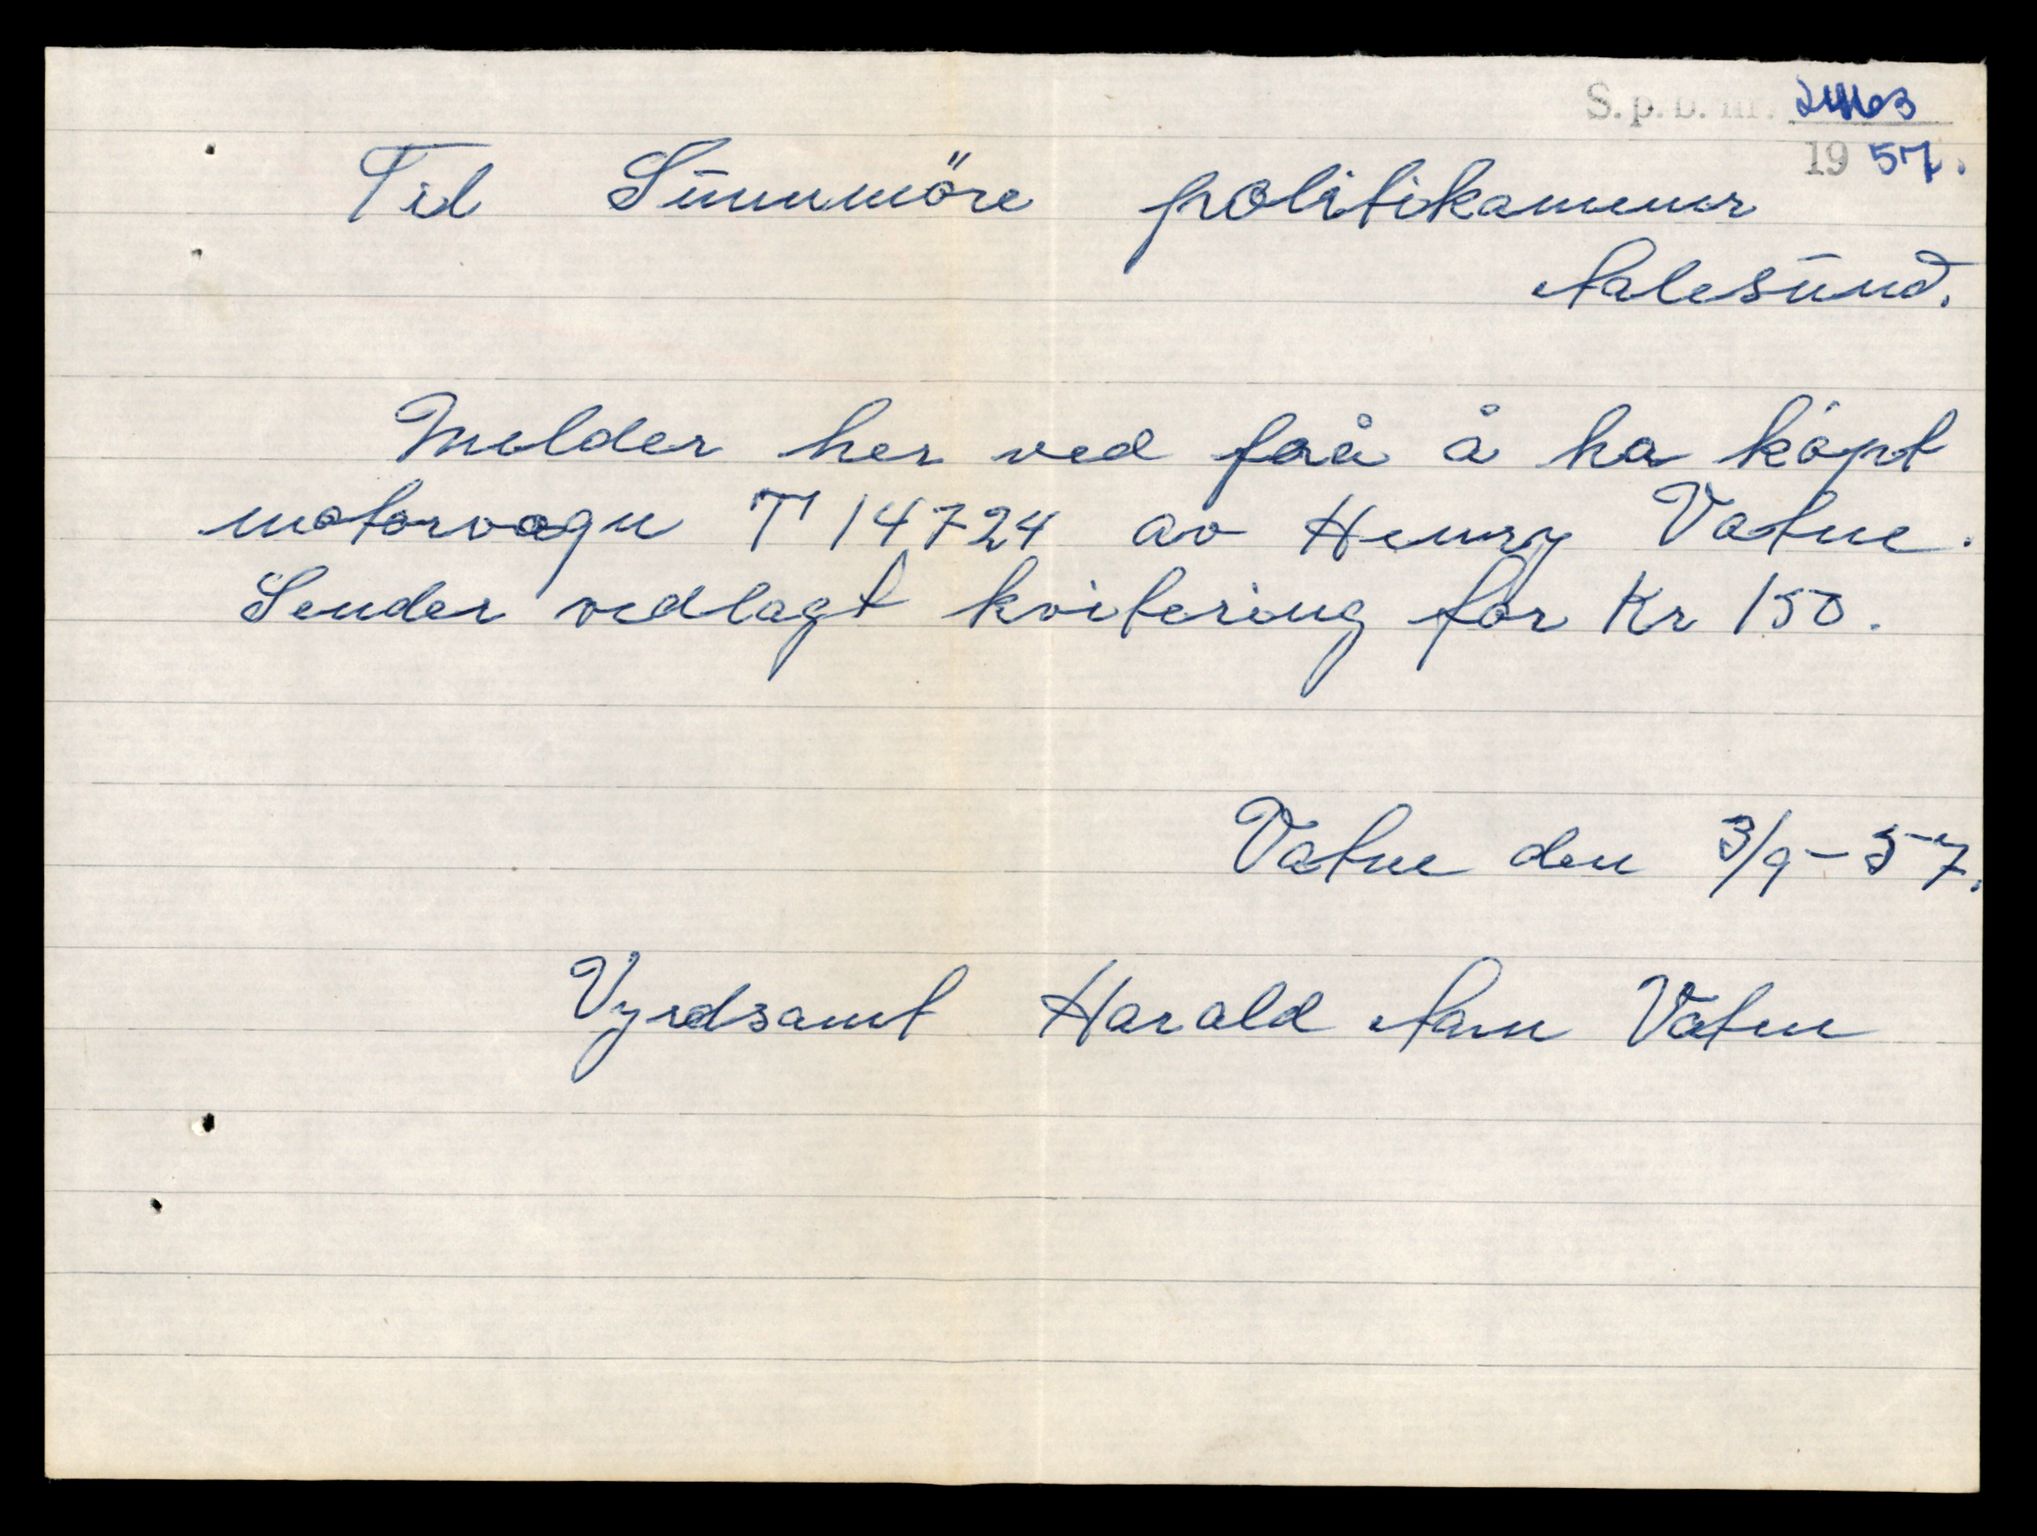 S. p. b. nr.
19 57.
Til Sunnmöre politikammer
Aalesund.
Melder her ved frå å ha köpt
motorvogn T 14724 av Henry Vatne.
Sender vedlagt kvitering for Kr 150.
Vatne den 3/9 - 57.
Vyrdsamt Harald Aarn Vatne